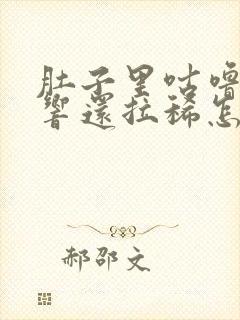 肚子里咕噜
響還拉稀怎
郝邵文